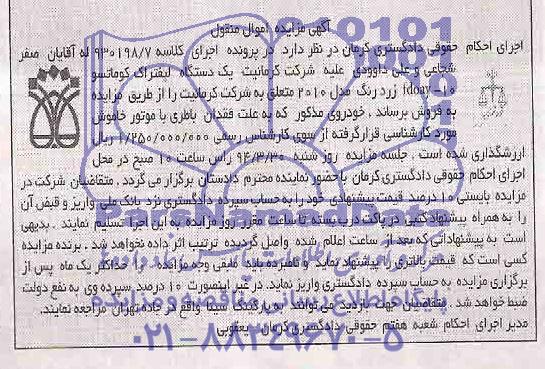 آگهی مزایده اموال منقول
اجرای احکام حقوقی دادگستری کرمان در نظر دارد در پرونده اجرای کلاسه ۹۳۰۱۹۸/۷ له آقایان صفر
شجاعی و علی داوودی علیه شرکت کرمانیت یک دستگاه لیفتراک کوماتسو
زرد رنگ مدل ۲۰۱۰ متعلق به شرکت کرمانیت را از طریق مزایده
به فروش برساند . خودروی مذکور که به علت فقدان باطری با موتور خاموش
مورد کارشناسی قرار گرفته از سوی کارشناس رسمی ۱/۲۵۰/۰۰۰/۰۰۰ ریال
ارزشگذاری شده است . جلسه مزایده روز شنبه ۹۴/۳/۳۰ راس ساعت ۱۰ صبح در محل
اجرای احکام حقوقی دادگستری کرمان با حضور نماینده محترم دادستان برگزار می گردد . متقاضیان شرکت در
مزایده بایستی ۱۰ درصد قیمت پیشنهادی خود را به حساب سپرده دادگستری نزد بانک ملی واریز و قبض آن
را به همراه پیشنهاد کتبی در پاکت در بسته تا ساعت مقرر روز مزایده به این اجرا تسلیم نمایند . بدیهی
است به پیشنهاداتی که بعد از ساعت اعلام شده واصل گردیده ترتیب اثر داده نخواهد شد . برنده مزایده
کسی است که قیمت بالاتری را پیشنهاد نماید و نامبرده باید مابقی وجه مزایده را حداکثر یک ماه پس از
برگزاری مزایده به حساب سپرده دادگستری واریز نماید. در غیر اینصورت ۱۰ درصد سپرده وی به نفع دولت
ضبط خواهد شد . متقاضیان جهت بازدید می توانند به پارکینگ سینا واقع در جاده تهران مراجعه نمایند.
مدیر اجرای احکام شعبه هفتم حقوقی دادگستری کرمان - یعقوبی
پایگاه اطلاع رسانی مناقصه و مزایده
۰۲۱-۸۸۳۴۹۶۷۰-۵